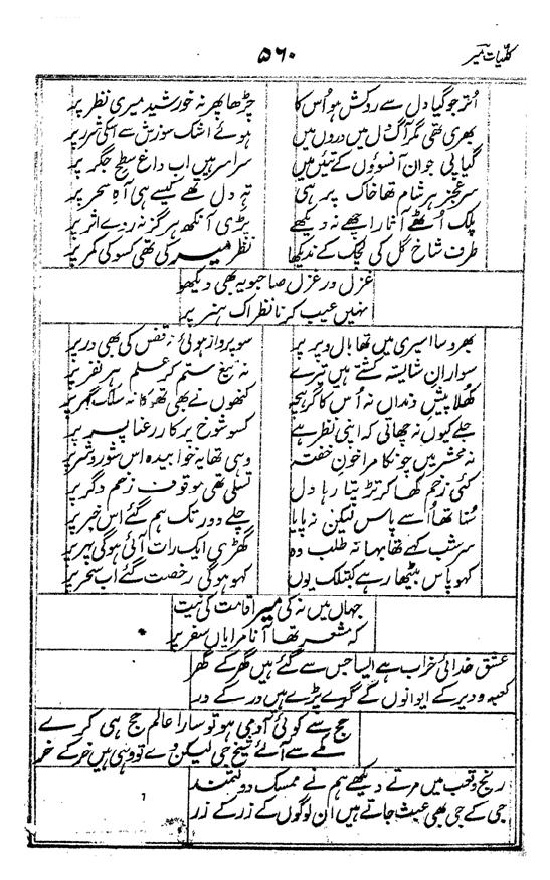 کلیات میر
۵۶۰
اُتر جو گیا دل سے روکش ہو اُس کا چڑھا پھر نہ خورشید میری نظر پر
بھری تھی مگر آگ دل میں دروں میں ہوئے اشک سوزش سے اسکی شرر پر
گیا پی جو ان آنسوؤں کے تئیں میں سراسر ہیں اب داغ سطح جگر پر
سرِ عجز ہر شام تھا خاک پر ہی تہِ دل تھے کیسے ہی آہِ سحر پر
پلک اُٹھے آثار اچھے نہ دیکھے پڑی آنکھ ہرگز نہ روئے اثر پر
طرف شاخ گل کی لچک کے نہ دیکھا نظر میر کی تھی کسو کی کمر پر
غزل در غزل صاحبو یہ بھی دیکھو
نہیں عیب کرنا نظر اک ہنر پر
بھروسا اسیری میں تھا بال و پر پر سو پرواز ہوئے نہ قفس کی بھی در پر
سواران شایستہ کشتے ہیں تیرے نہ تیغ ستم کر علم ہر نفر پر
کھلا پیش دنداں نہ اُس کا گرہچہ کنھوں نے بھی تھوکا نہ سلک گہر پر
جلے کیوں نہ چھاتی کہ اپنی نظر ہے کسو شوخ پرکار رعنا پسر پر
نہ محشر میں چونکا مرا خونِ خفتہ وہی تھا یہ خوابیدہ اس شور و شر پر
کئی زخم کھا کر تڑپتا رہا دل تسلی تھی موقوف زخم دگر پر
سنا تھا اُسے پاس لیکن نہ پایا چلے دور تک ہم گئے اس خبر پر
سر شب کہے تھا بہانہ طلب وہ گھڑی ایک رات آئی ہوگی پہر پر
کہو پاس بیٹھا رہے کبتلک یوں کہو ہوگی رخصت گئے اب سحر پر
جہاں میں نہ کی میر اقامت کی نیت
کہ مشعر تھا آنا مرا یاں سفر پر
عشق خدائی خراب ہے ایسا جس سے گئے ہیں گھر کے گھر
کعبہ و دیر کے ایوانوں کے گرے پڑے ہیں در کے در
حج سے کوئی آدمی ہو تو سارا عالم حج ہی کرے
مکے سے آئے شیخ جی لیکن وے تو وہی ہیں خر کے خر
رنج و تعب میں مرتے دیکھے ہم نے ممسک دولتمند
جی کے جی بھی عبث جاتے ہیں ان لوگوں کے زر کے زر